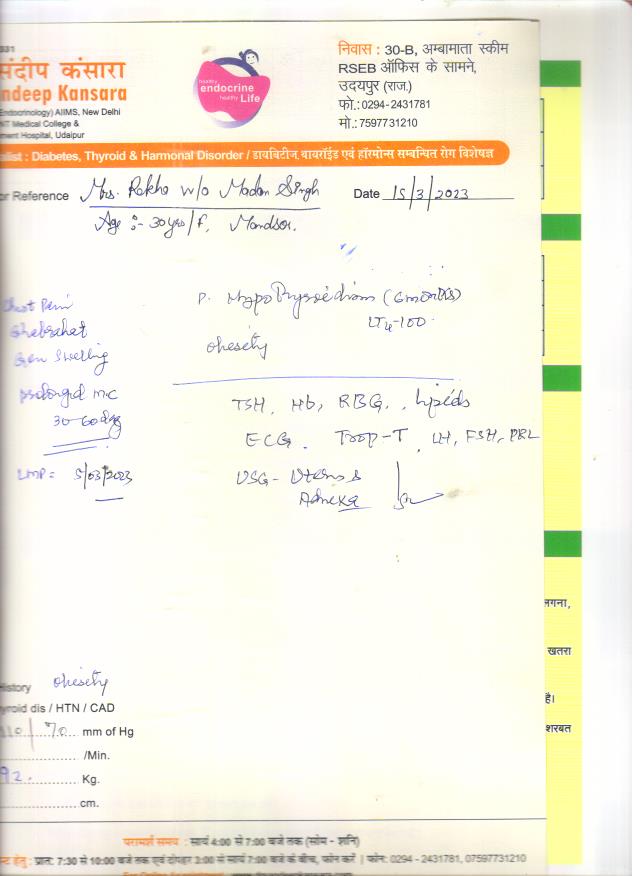 331
संदीप कंसारा
ndeep Kansara
Endocrinology) AIIMS, New Delhi
NT Medical College &
ment Hospital, Udaipur
healthy
endocrine
healthy Life
निवास : 30-B, अम्बामाता स्कीम
RSEB ऑफिस के सामने,
उदयपुर (राज.)
फो.:0294-2431781
मो.:7597731210
alist : Diabetes, Thyroid & Harmonal Disorder / डायबिटीज, थायरॉईड एवं हॉरमोन्स सम्बन्धित रोग विशेषज्ञ
or Reference Mrs. Rekha w/o Madan Singh Date 15/3/2023
Age :- 30yrs/F, Mandsor.
Chest Pain
Ghabrahat
Gen Swelling
prolonged m.c
30-60 days
LMP = 5/03/2023
P. Hypothyroidism (6months)
LT4-100
obesity
TSH, Hb, RBG, Lipids
ECG. Trop-T, LH, FSH, PRL
USG - Uterus &
Adnexa
History obesity
yroid dis / HTN / CAD
110/70 mm of Hg
/Min.
92. Kg.
cm.
लगना,
खतरा
है।
शरबत
परामर्श समय : सायं 4:00 से 7:00 बजे तक (सोम - शनि)
न्ट हेतु : प्रातः 7:30 से 10:00 बजे तक एवं दोपहर 3:00 से सायं 7:00 बजे के बीच, फोन करें | फोन: 0294 - 2431781, 07597731210